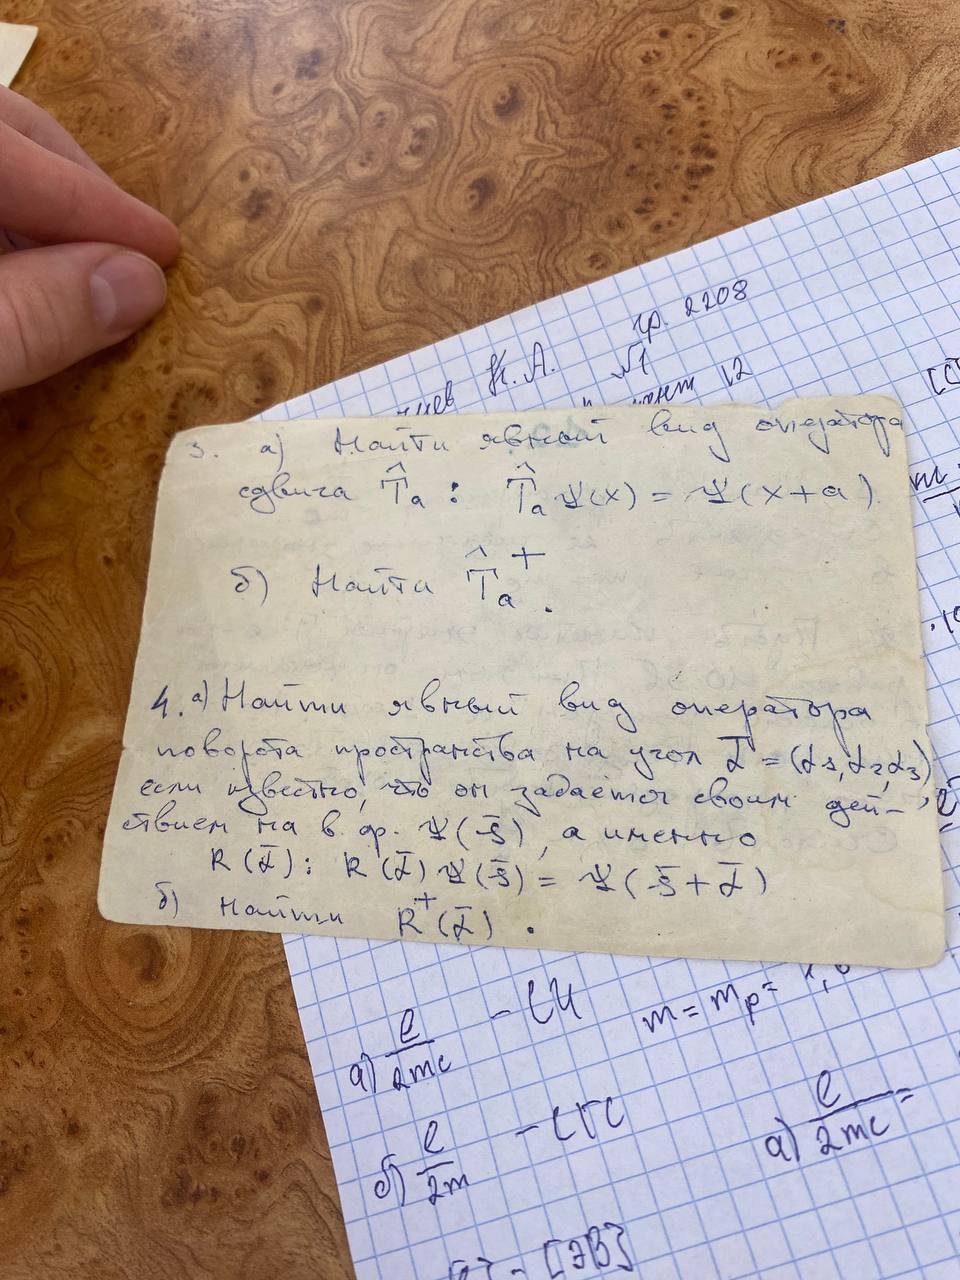 К. А. гр. 2208
№1
3. а) Найти явный вид оператора
сдвига T̂a : T̂a Ψ(x) = Ψ(x+a)
б) Найти T̂a⁺.
4. а) Найти явный вид оператора
поворота пространства на угол ᾱ = (α1, α2, α3)
если известно, что он задается своим дей-
ствием на в. ф. Ψ(φ̄), а именно
R(ᾱ): R(ᾱ)Ψ(φ̄) = Ψ(φ̄+ᾱ)
б) Найти R⁺(ᾱ).
а) e/2mc
m = mp =
б) e/2m
а) e/2mc =